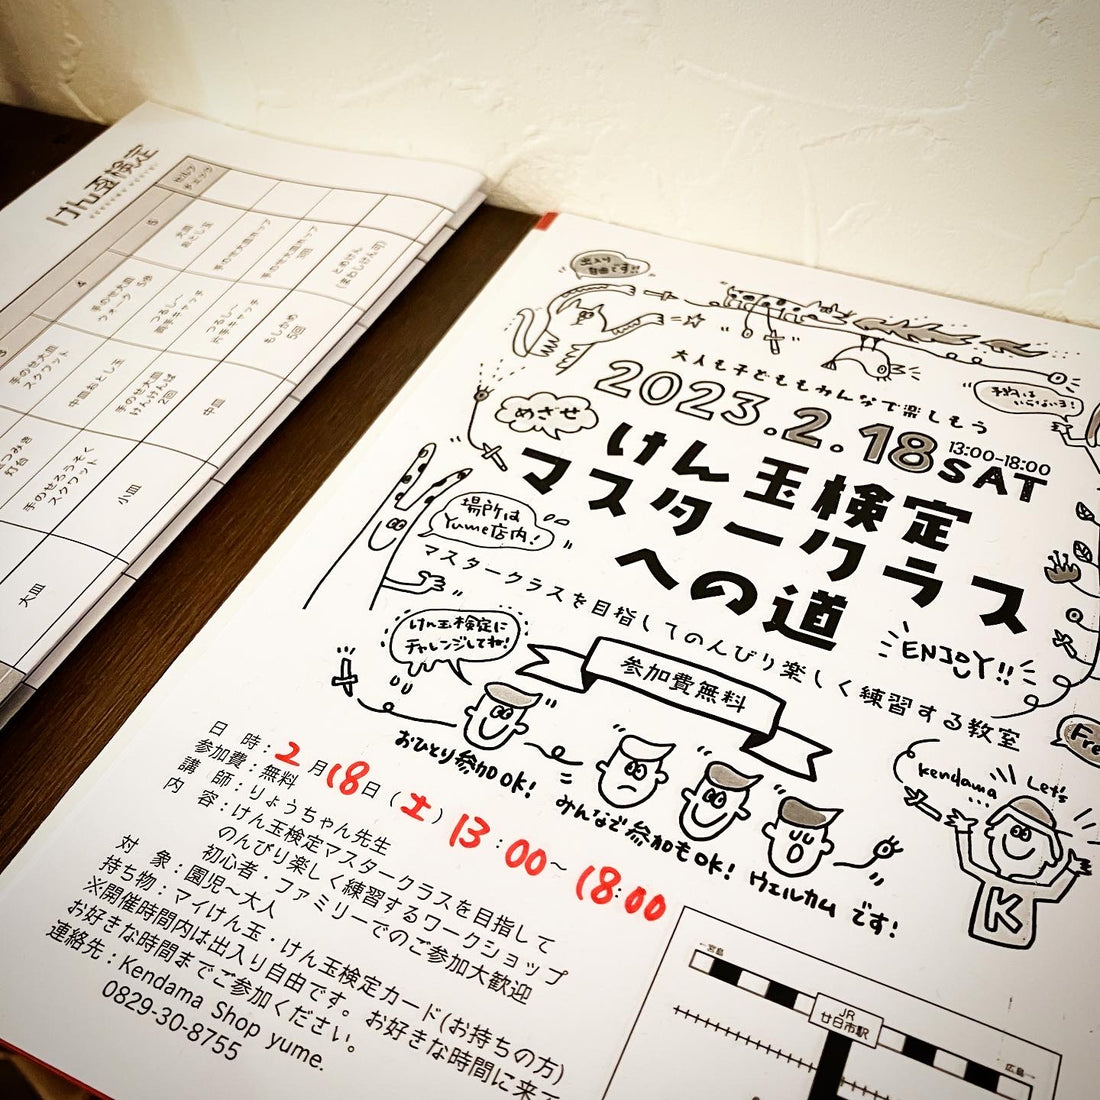 けん玉検定
セルフ
チェック
5
大皿
おとし玉
手のせ大皿ホップ
手のせ大皿ホップ
3回
とめけん
(まわしけん可)
4
手のせ大皿
ウォーク 5歩
つるし〜
両手キャッチ
つるし〜
片手キャッチ
もしかめ
5回
3
手のせ大皿
スクワット
中皿おとし玉
手のせ大皿
けんけんぱ
2回
中皿
つみき
灯台
手のせろうそく
スクワット
小皿
大皿
出入り
自由です!!
大人も子どももみんなで楽しもう
2023.2.18 SAT
13:00-18:00
予約は
いらないよ!
めざせ
けん玉検定
マスタークラス
への道
場所は
Yume店内!
マスタークラスを目指してのんびり楽しく練習する教室
ENJOY!!
けん玉検定に
チャレンジしてね!
参加費無料
Free
おひとり参加OK!
みんなで参加もOK!
ウェルカムです!
kendama
Let's
K
日 時:2月18日(土)13:00~18:00
参加費:無料
講 師:りょうちゃん先生
内 容:けん玉検定マスタークラスを目指して
のんびり楽しく練習するワークショップ
初心者・ファミリーでのご参加大歓迎
対 象:園児〜大人
持ち物:マイけん玉・けん玉検定カード(お持ちの方)
※開催時間内は出入り自由です。お好きな時間に来て
お好きな時間までご参加ください。
連絡先:Kendama Shop yume.
0829-30-8755
←宮島
JR
廿日市駅
広島→